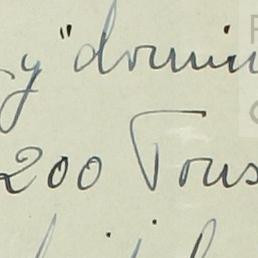 y "domin
200 Tons